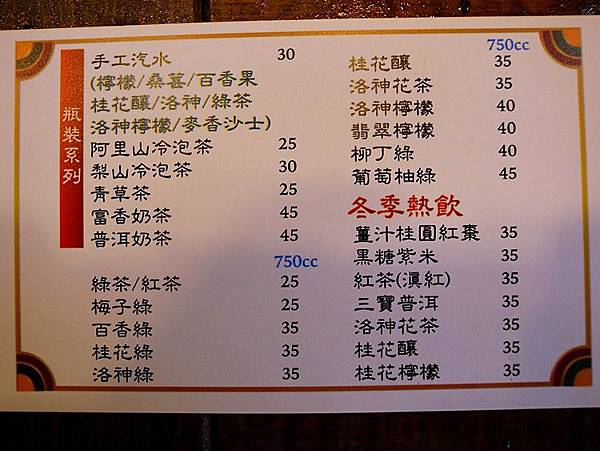 瓶裝系列
手工汽水 30
(檸檬/桑葚/百香果
桂花釀/洛神/綠茶
洛神檸檬/麥香沙士)
阿里山冷泡茶 25
梨山冷泡茶 30
青草茶 25
富香奶茶 45
普洱奶茶 45
750cc
綠茶/紅茶 25
梅子綠 25
百香綠 35
桂花綠 35
洛神綠 35
750cc
桂花釀 35
洛神花茶 35
洛神檸檬 40
翡翠檸檬 40
柳丁綠 40
葡萄柚綠 45
冬季熱飲
薑汁桂圓紅棗 35
黑糖紫米 35
紅茶(滇紅) 35
三寶普洱 35
洛神花茶 35
桂花釀 35
桂花檸檬 35